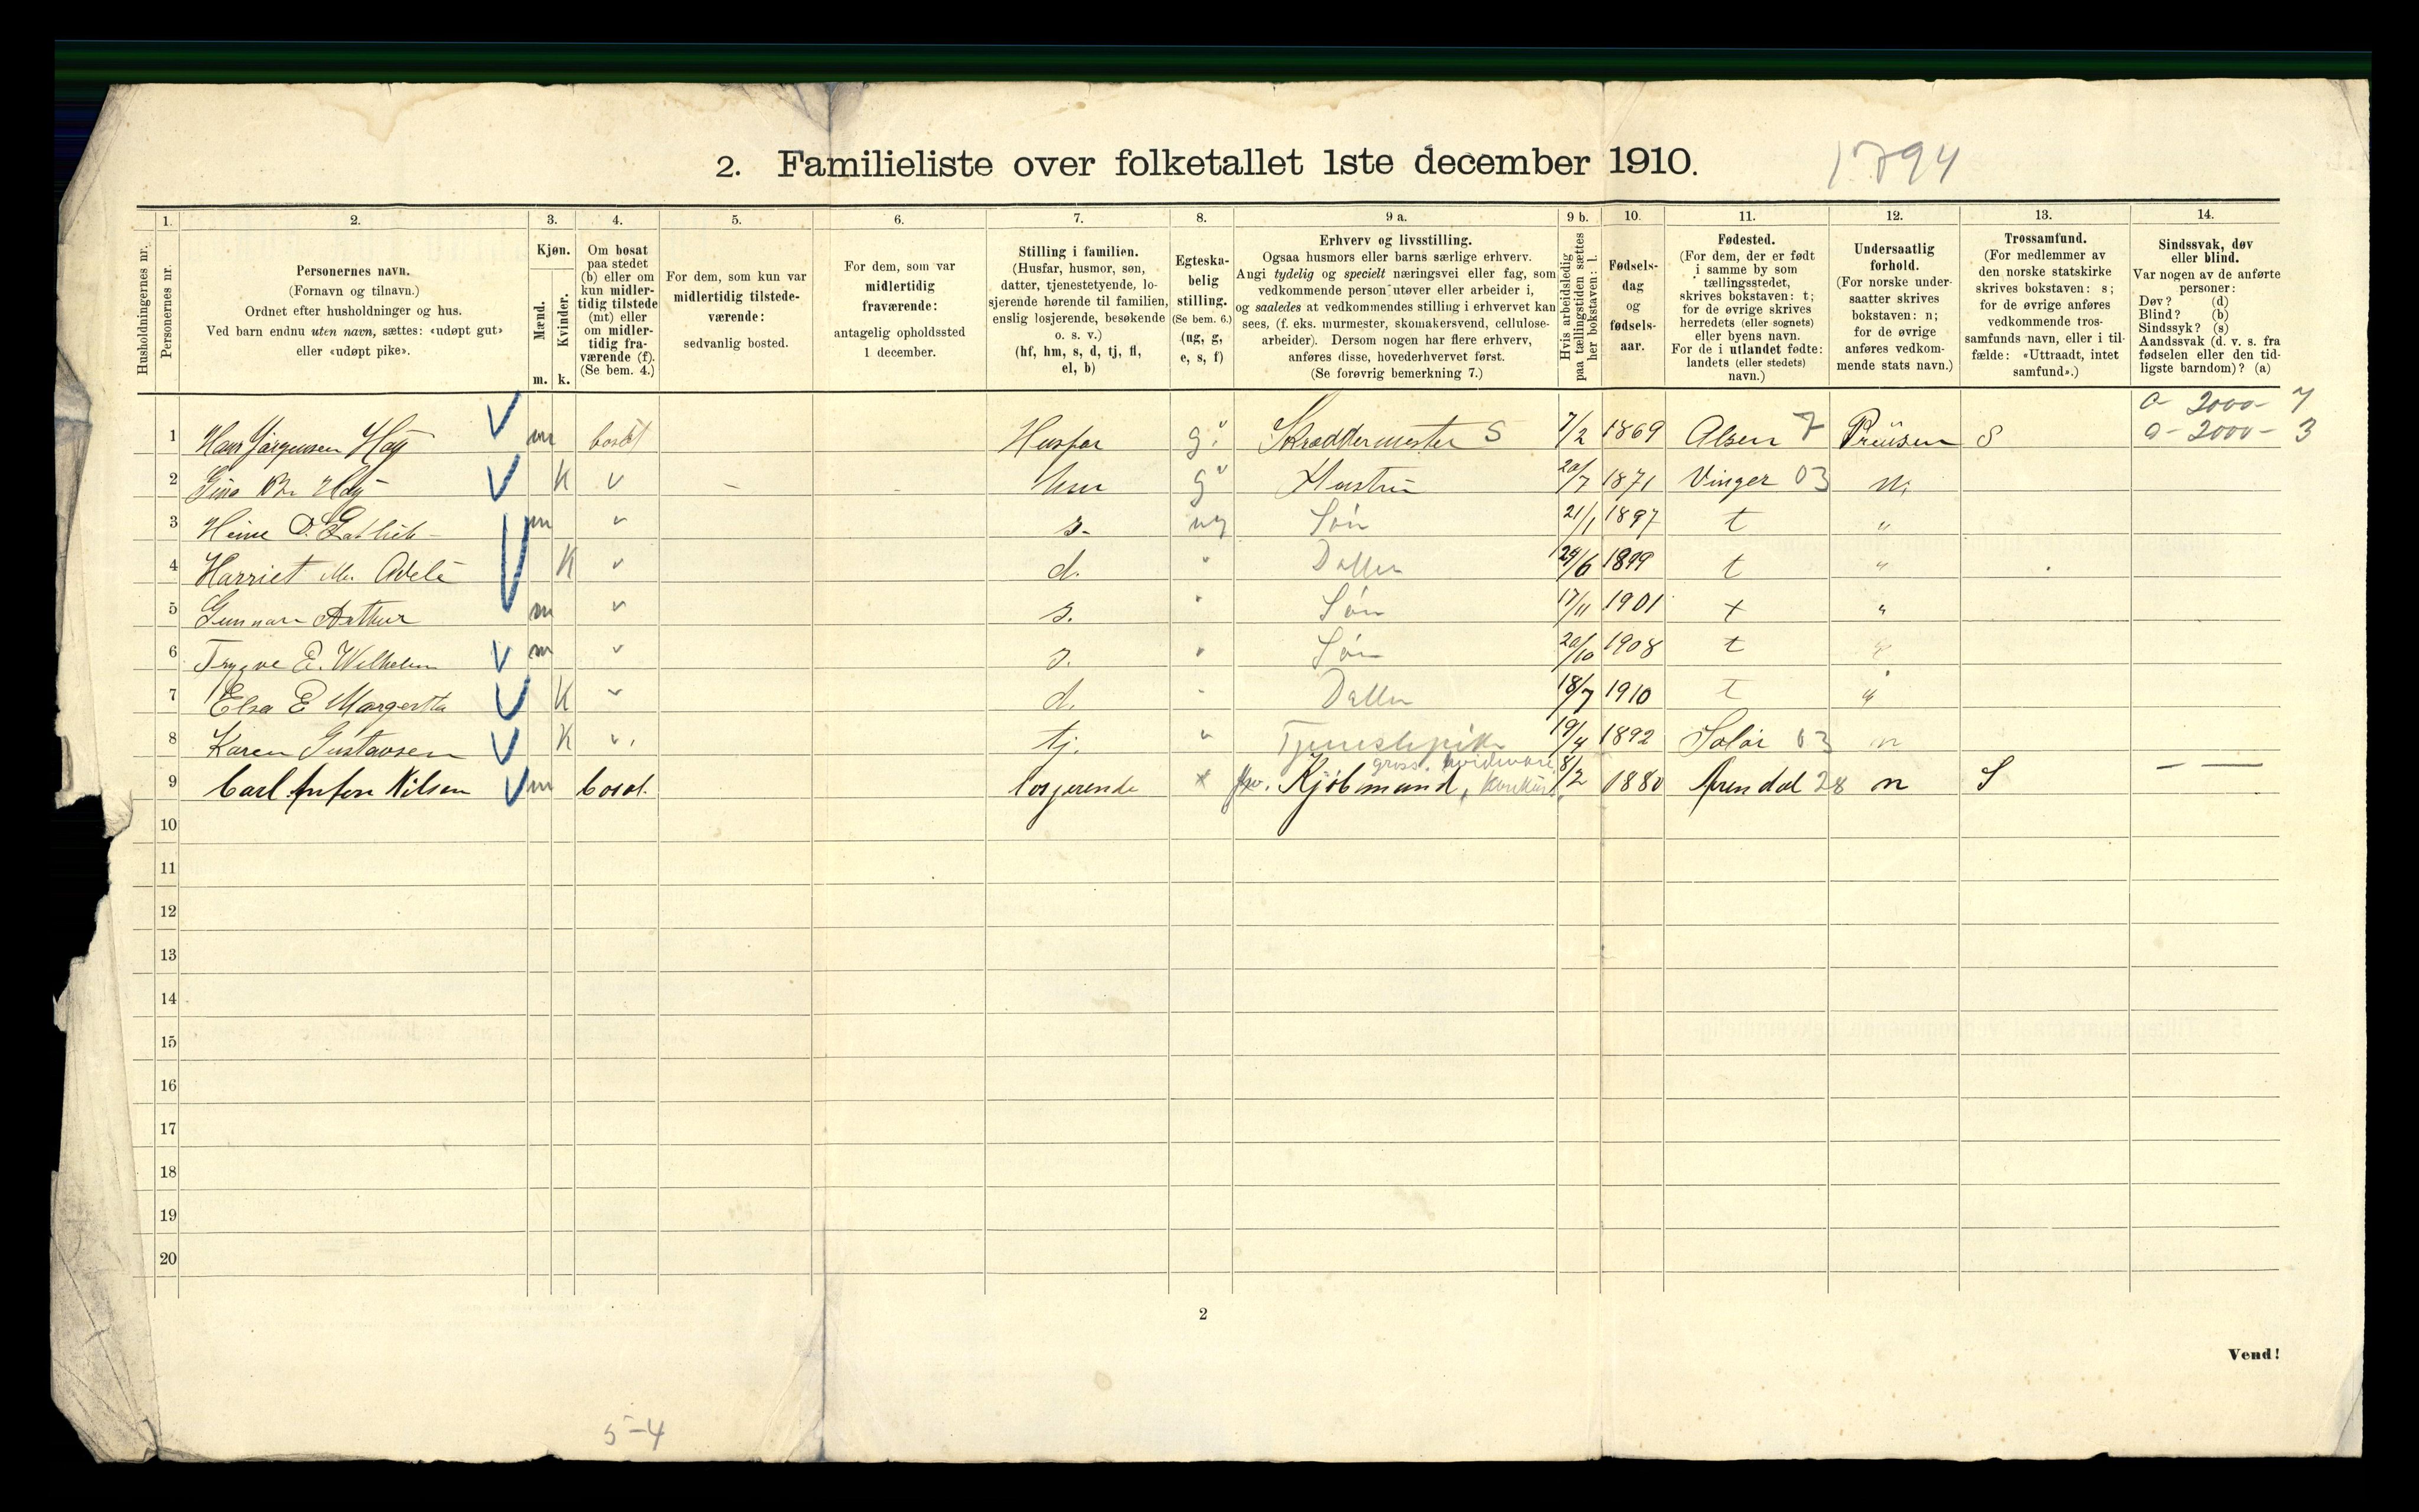 2. Familieliste over folketallet 1ste december 1910.
1794
Husholdningernes nr.
1.
Personernes nr.
2.
Personernes navn.
(Fornavn og tilnavn.)
Ordnet efter husholdninger og hus.
Ved barn endnu uten navn, sættes: «udøpt gut»
eller «udøpt pike».
3.
Kjøn.
Mænd.
m.
Kvinder.
k.
4.
Om bosat
paa stedet
(b) eller om
kun midler-
tidig tilstede
(mt) eller
om midler-
tidig fra-
værende (f).
(Se bem. 4.)
5.
For dem, som kun var
midlertidig tilstede-
værende:
sedvanlig bosted.
6.
For dem, som var
midlertidig
fraværende:
antagelig opholdssted
1 december.
7.
Stilling i familien.
(Husfar, husmor, søn,
datter, tjenestetyende, lo-
sjerende hørende til familien,
enslig losjerende, besøkende
o. s. v.)
(hf, hm, s, d, tj, fl,
el, b)
8.
Egteska-
belig
stilling.
(Se bem. 6.)
(ug, g,
e, s, f)
9 a.
Erhverv og livsstilling.
Ogsaa husmors eller barns særlige erhverv.
Angi tydelig og specielt næringsvei eller fag, som
vedkommende person utøver eller arbeider i,
og saaledes at vedkommendes stilling i erhvervet kan
sees, (f. eks. murmester, skomakersvend, cellulose-
arbeider). Dersom nogen har flere erhverv,
anføres disse, hovederhvervet først.
(Se forøvrig bemerkning 7.)
9 b.
Hvis arbeidsledig
paa tællingstiden sættes
her bokstaven: l.
10.
Fødsels-
dag
og
fødsels-
aar.
11.
Fødested.
(For dem, der er født
i samme by som
tællingsstedet,
skrives bokstaven: t;
for de øvrige skrives
herredets (eller sognets)
eller byens navn.
For de i utlandet fødte:
landets (eller stedets)
navn.)
12.
Undersaatlig
forhold.
(For norske under-
saatter skrives
bokstaven: n;
for de øvrige
anføres vedkom-
mende stats navn.)
13.
Trossamfund.
(For medlemmer av
den norske statskirke
skrives bokstaven: s;
for de øvrige anføres
vedkommende tros-
samfunds navn, eller i til-
fælde: «Uttraadt, intet
samfund».)
14.
Sindssvak, døv
eller blind.
Var nogen av de anførte
personer:
Døv? (d)
Blind? (b)
Sindssyk? (s)
Aandssvak (d. v. s. fra
fødselen eller den tid-
ligste barndom)? (a)
0- 2000- 7
0- 2000- 3
1 Hans Jörgensen Höy m bosat Husfar g. Skræddermester S 7/2 1869 Alsen 7 Preüsen S
2 Gina Höy K v g Hustrü 20/7 1871 Vinger 03 n.
3 m " s. ug Sön 21/1 1897 t "
4 Harriet M. Adele K " d. " Datter 24/6 1899 t "
5 Gunnar Arthur m " s. " Sön 17/11 1901 t "
6 Trygve E. Wilhelm m " s. " Sön 20/10 1908 t "
7 Elsa E Margretta K " d. " Datter 18/7 1910 t "
8 Karen Gustavsen K " tj. " Tjenestepike 19/4 1892 Solör 03 n
9 Carl Anton Nilsen m bosat. losjerende x Kjöbmand, 8/2 1880 Arendal 28 n S — —
10
11
12
13
14
15
16
17
18
19
20
2
Vend!
5-4